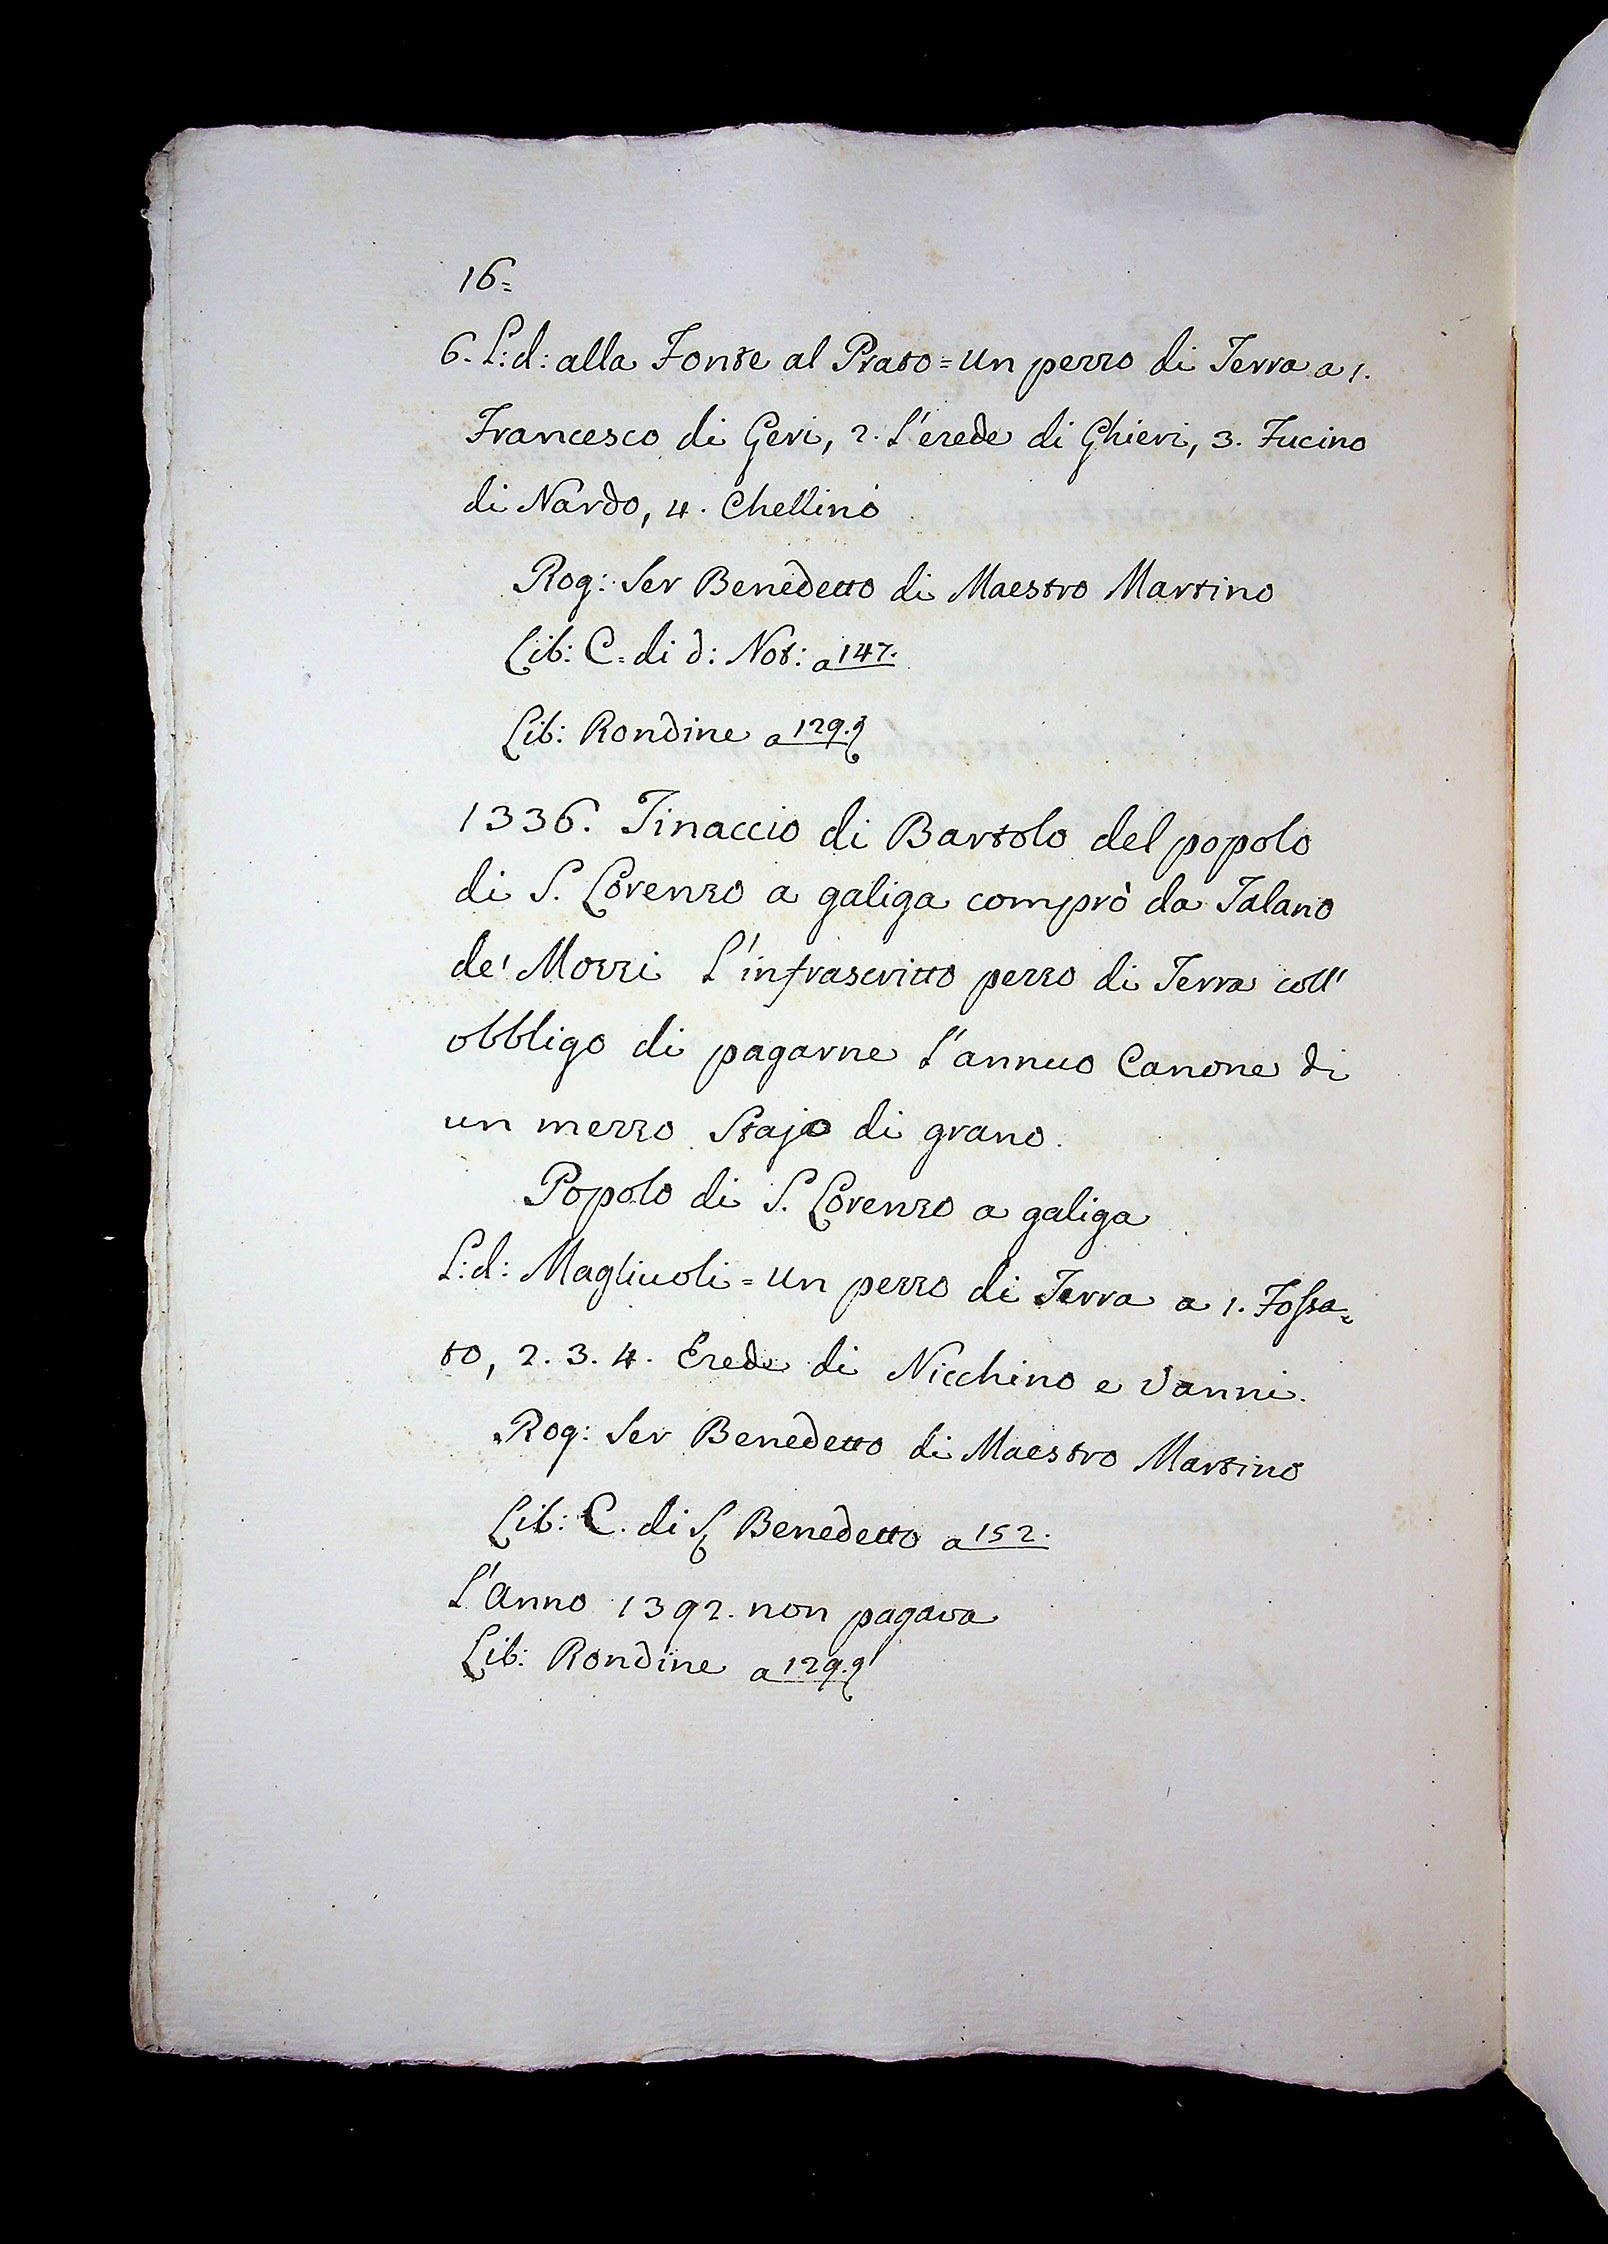 16=
6. L: d: alla Fonte al Prato = un pezzo di Terra a 1.
Francesco di Geri, 2. l'erede di Ghieri, 3. Fucino
di Nardo, 4. Chellino
Rog: Ser Benedetto di Maestro Martino
Lib: C = di d: Not: a 147.
Lib: Rondine a 129.
1336. Tinaccio di Bartolo del popolo
di S. Lorenzo a galiga comprò da Talano
de' Mozzi l'infrascritto pezzo di Terra coll'
obbligo di pagarne l'annuo Canone di
un mezzo Stajo di grano.
Popolo di S. Lorenzo a galiga
L: d: Magliuoli = un pezzo di Terra a 1. Fossa=
to, 2. 3. 4. Erede di Nicchino e Vanni.
Rog: Ser Benedetto di Maestro Martino
Lib: C. di S. Benedetto a 152.
L'Anno 1392. non pagava
Lib: Rondine a 129.